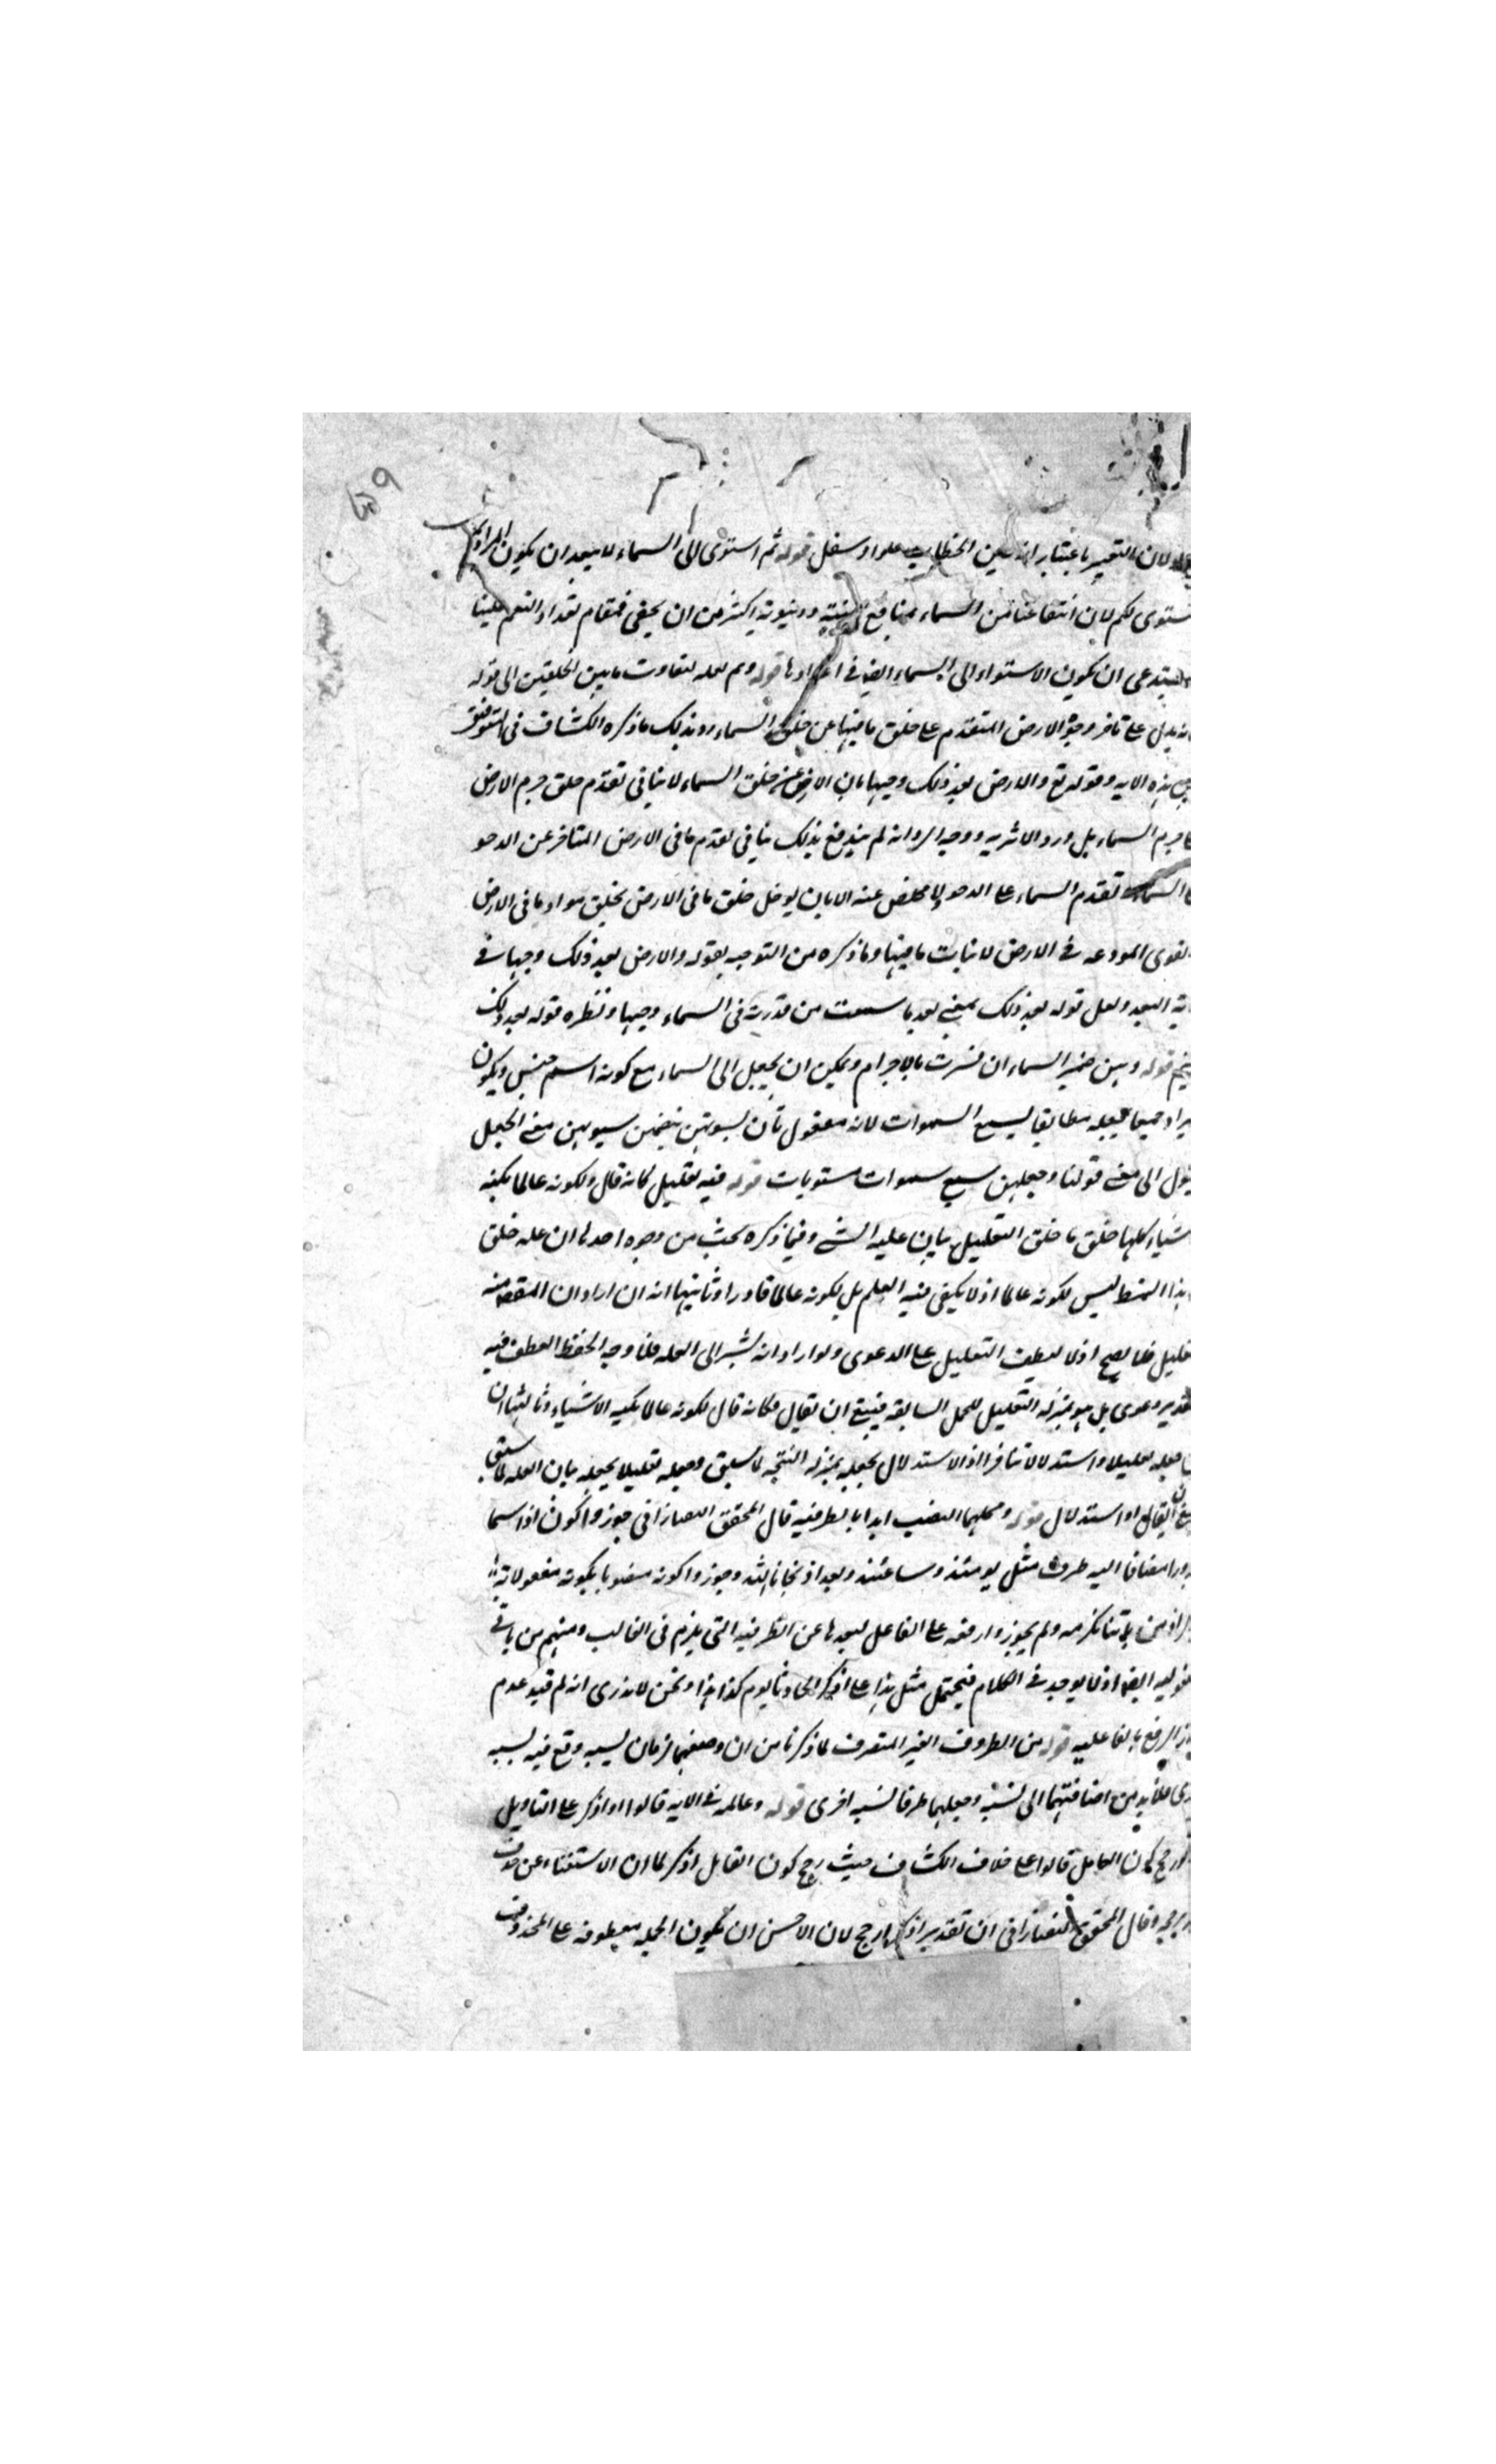 لان التعبير باعتبار انه بين الخطاب علوا وسفل قوله ثم استوى الى السماء لا يبعد ان يكون المراد
ستوى لكم لان انتفاعنا من السماء بمنافع دينية ودنيوية اكثر من ان يحفى فمقام تعداد النعم علينا
يستدعى ان يكون الاستواء الى السماء ايضا فى اعدادها قوله وثم لعله لتفاوت ما بين الخلقين الى قوله
انه يدل على تاخر دحو الارض المتقدم على خلق ما فيها عن خلق السماء رد بذلك ما ذكره الكشاف فى التوفيق
بين هذه الايه وقوله تع والارض بعد ذلك دحيها بان الارض عن خلق السماء لا ينافى تقدم خلق جرم الارض
جرم السماء بل ورد الاثر به ووجه الرد انه لم يندفع بذلك ينافى تقدم ما فى الارض المتاخر عن الدحو
السماء تقدم السماء على الدحو ولا مخلص عنه الا بان يوخل خلق ما فى الارض بخلق مواد ما فى الارض
القوى المودعه فى الارض لانبات ما فيها وما ذكره من التوجيه بقوله والارض بعد ذلك دحيها فى
ية البعد ولعل قوله بعد ذلك بمعنى بعد ما سمعت من قدرته فى السماء دحيها ونظره قوله بعد ذلك
زنيم قوله وهن ضمير السماء ان فسرت بالاجرام ويمكن ان يجعل الى السماء مع كونه اسم جنس ويكون
يراد جميعا فيجعله مطابقا لسبع السموات لانه مفعول ثان لسويهن بتضمن سويهن معنى الجعل
يئول الى معنى قولنا وجعلهن سبع سموات مستويات قوله فيه تعليل كانه قال ولكونه عالما بكنه
شياء كلها خلق ما خلق التعليل بيان علية الشى وفيما ذكره بحث من وجوه احدها ان علة خلق
هذا النمط ليس لكونه عالما اذ لا يكفى فيه العلم بل لكونه عالما قادرا وثانيها انه ان اراد ان المقصد منه
تعليل فلا يصح اذ لا يعطف التعليل على الدعوى ولو اراد انه يشير الى العله فلا وجه لحفظ العطف فيه
تقدير دعوى بل هو بمنزلة التعليل للجمل السابقه فينبغى ان يقال فكانه قال لكونه عالما بكنه الاشياء وثالثها ان
جعله تعليلا واستدلالا تنافرا اذ الاستدلال يجعله بمنزلة النتيجه لما سبق وجعله تعليلا يجعله بيان العله لما سبق
ان يقال او استدلال قوله ومحلهما النصب ابدا بالظرفيه قال المحقق التفتازانى جوزوا كون اذ اسما
مجرورا مضافا اليه ظرف مثل يومئذ وساعتئذ وبعد اذ نجانا الله وجوزوا كونه منصوبا بكونه مفعولا به
ولم يجوزوا رفعه على الفاعل لبعدها عن الظرفيه التى يلزم فى الغالب ومنهم من ياتى
المفعوليه ايضا اذ لا يوجد فى الكلام فيحتمل مثل هذا على اذكر الحادث يوم كذا هذا ونحن لا ندرى انه لم قيد عدم
الرفع بالفاعليه قوله من الظروف الغير المتصرف لما ذكرنا من ان وضعهما زمان نسبه وقع فيه نسبه
اخرى فلا بد من اضافتهما الى نسبة وجعلهما ظرفا لنسبه اخرى قوله وعامله فى الايه قالوا او اذكر على التاويل
رجح كون العامل قالوا على خلاف الكشاف حيث رجح كون العامل اذكر لما ان الاستغناء عن حذف
يرجحه وقال المحقق التفتازانى ان تقدير اذكر ارجح لان الاحسن ان يكون الجمله معطوفه على المحذوف